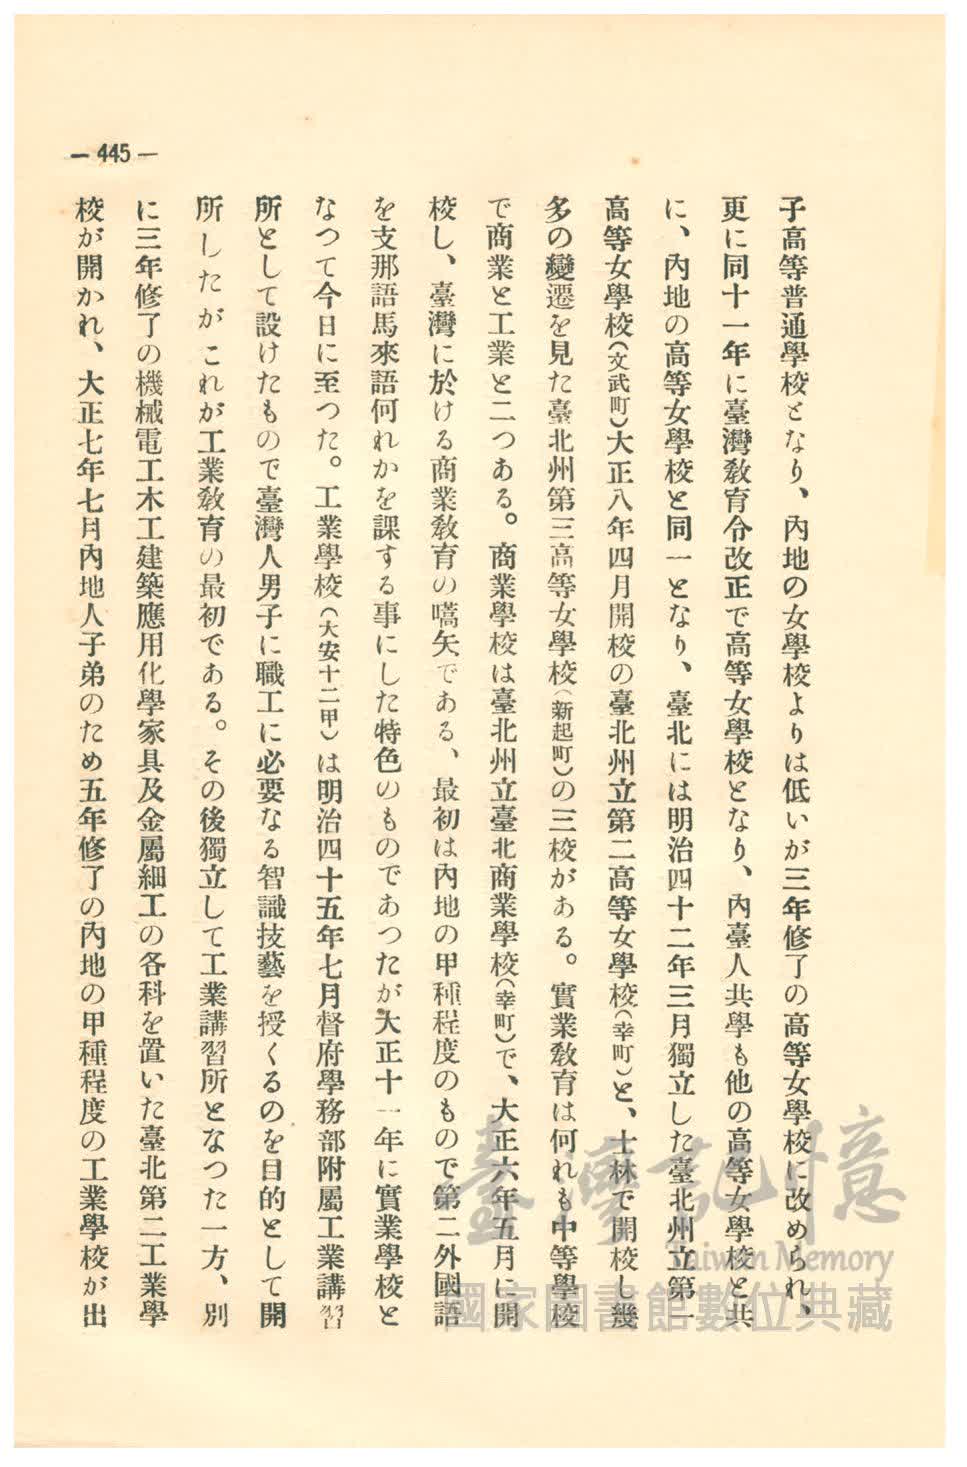 — 445 —
子高等普通學校となり、內地の女學校よりは低いが三年修了の高等女學校に改められ、
更に同十一年に臺灣敎育令改正で高等女學校となり、內臺人共學も他の高等女學校と共
に、內地の高等女學校と同一となり、臺北には明治四十二年三月獨立した臺北州立第一
高等女學校(文武町)大正八年四月開校の臺北州立第二高等女學校(幸町)と、士林で開校し幾
多の變遷を見た臺北州第三高等女學校(新起町)の三校がある。實業敎育は何れも中等學校
で商業と工業と二つある。商業學校は臺北州立臺北商業學校(幸町)で、大正六年五月に開
校し、臺灣に於ける商業敎育の嚆矢である、最初は內地の甲種程度のもので第二外國語
を支那語馬來語何れかを課する事にした特色のものであつたが大正十一年に實業學校と
なつて今日に至つた。工業學校(大安十二甲)は明治四十五年七月督府學務部附屬工業講習
所として設けたもので臺灣人男子に職工に必要なる智識技藝を授くるのを目的として開
所したがこれが工業敎育の最初である。その後獨立して工業講習所となつた一方、別
に三年修了の機械電工木工建築應用化學家具及金屬細工の各科を置いた臺北第二工業學
校が開かれ、大正七年七月內地人子弟のため五年修了の內地の甲種程度の工業學校が出
臺灣記憶
Taiwan Memory
國家圖書館數位典藏